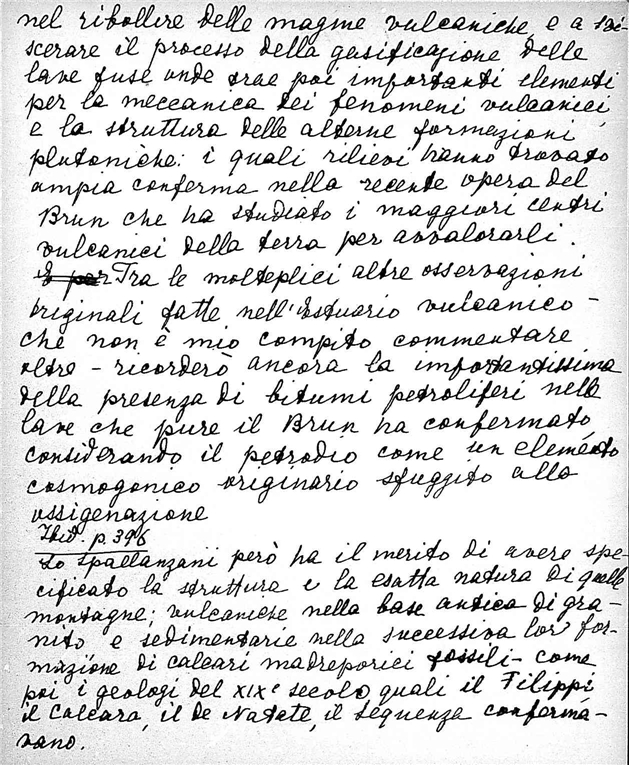 nel ribollire delle magme vulcaniche, e a svi-
scerare il processo della gasificazione delle
lave fuse onde trae poi importanti elementi
per la meccanica dei fenomeni vulcanici
e la struttura delle alterne formazioni
plutoniche: i quali rilievi hanno trovato
ampia conferma nella recente opera del
Brun che ha studiato i maggiori centri
vulcanici della terra per avvalorarli.
Tra le molteplici altre osservazioni
originali fatte nell'Estuario vulcanico -
che non è mio compito commentare
oltre - ricorderò ancora la importantissima
della presenza di bitumi petroliferi nelle
lave che pure il Brun ha confermato
considerando il petrolio come un elemento
cosmogonico originario sfuggito alla
ossigenazione
Ibid. p. 396
Lo Spallanzani però ha il merito di avere spe-
cificato la struttura e la esatta natura di quelle
montagne; vulcaniche nella base antica di gra-
nito e sedimentarie nella successiva lor for-
mazione di calcari madreporici fossili - come
poi i geologi del XIX° secolo quali il Filippi
il Calcara, il De Natale, il Seguenza conferma-
vano.